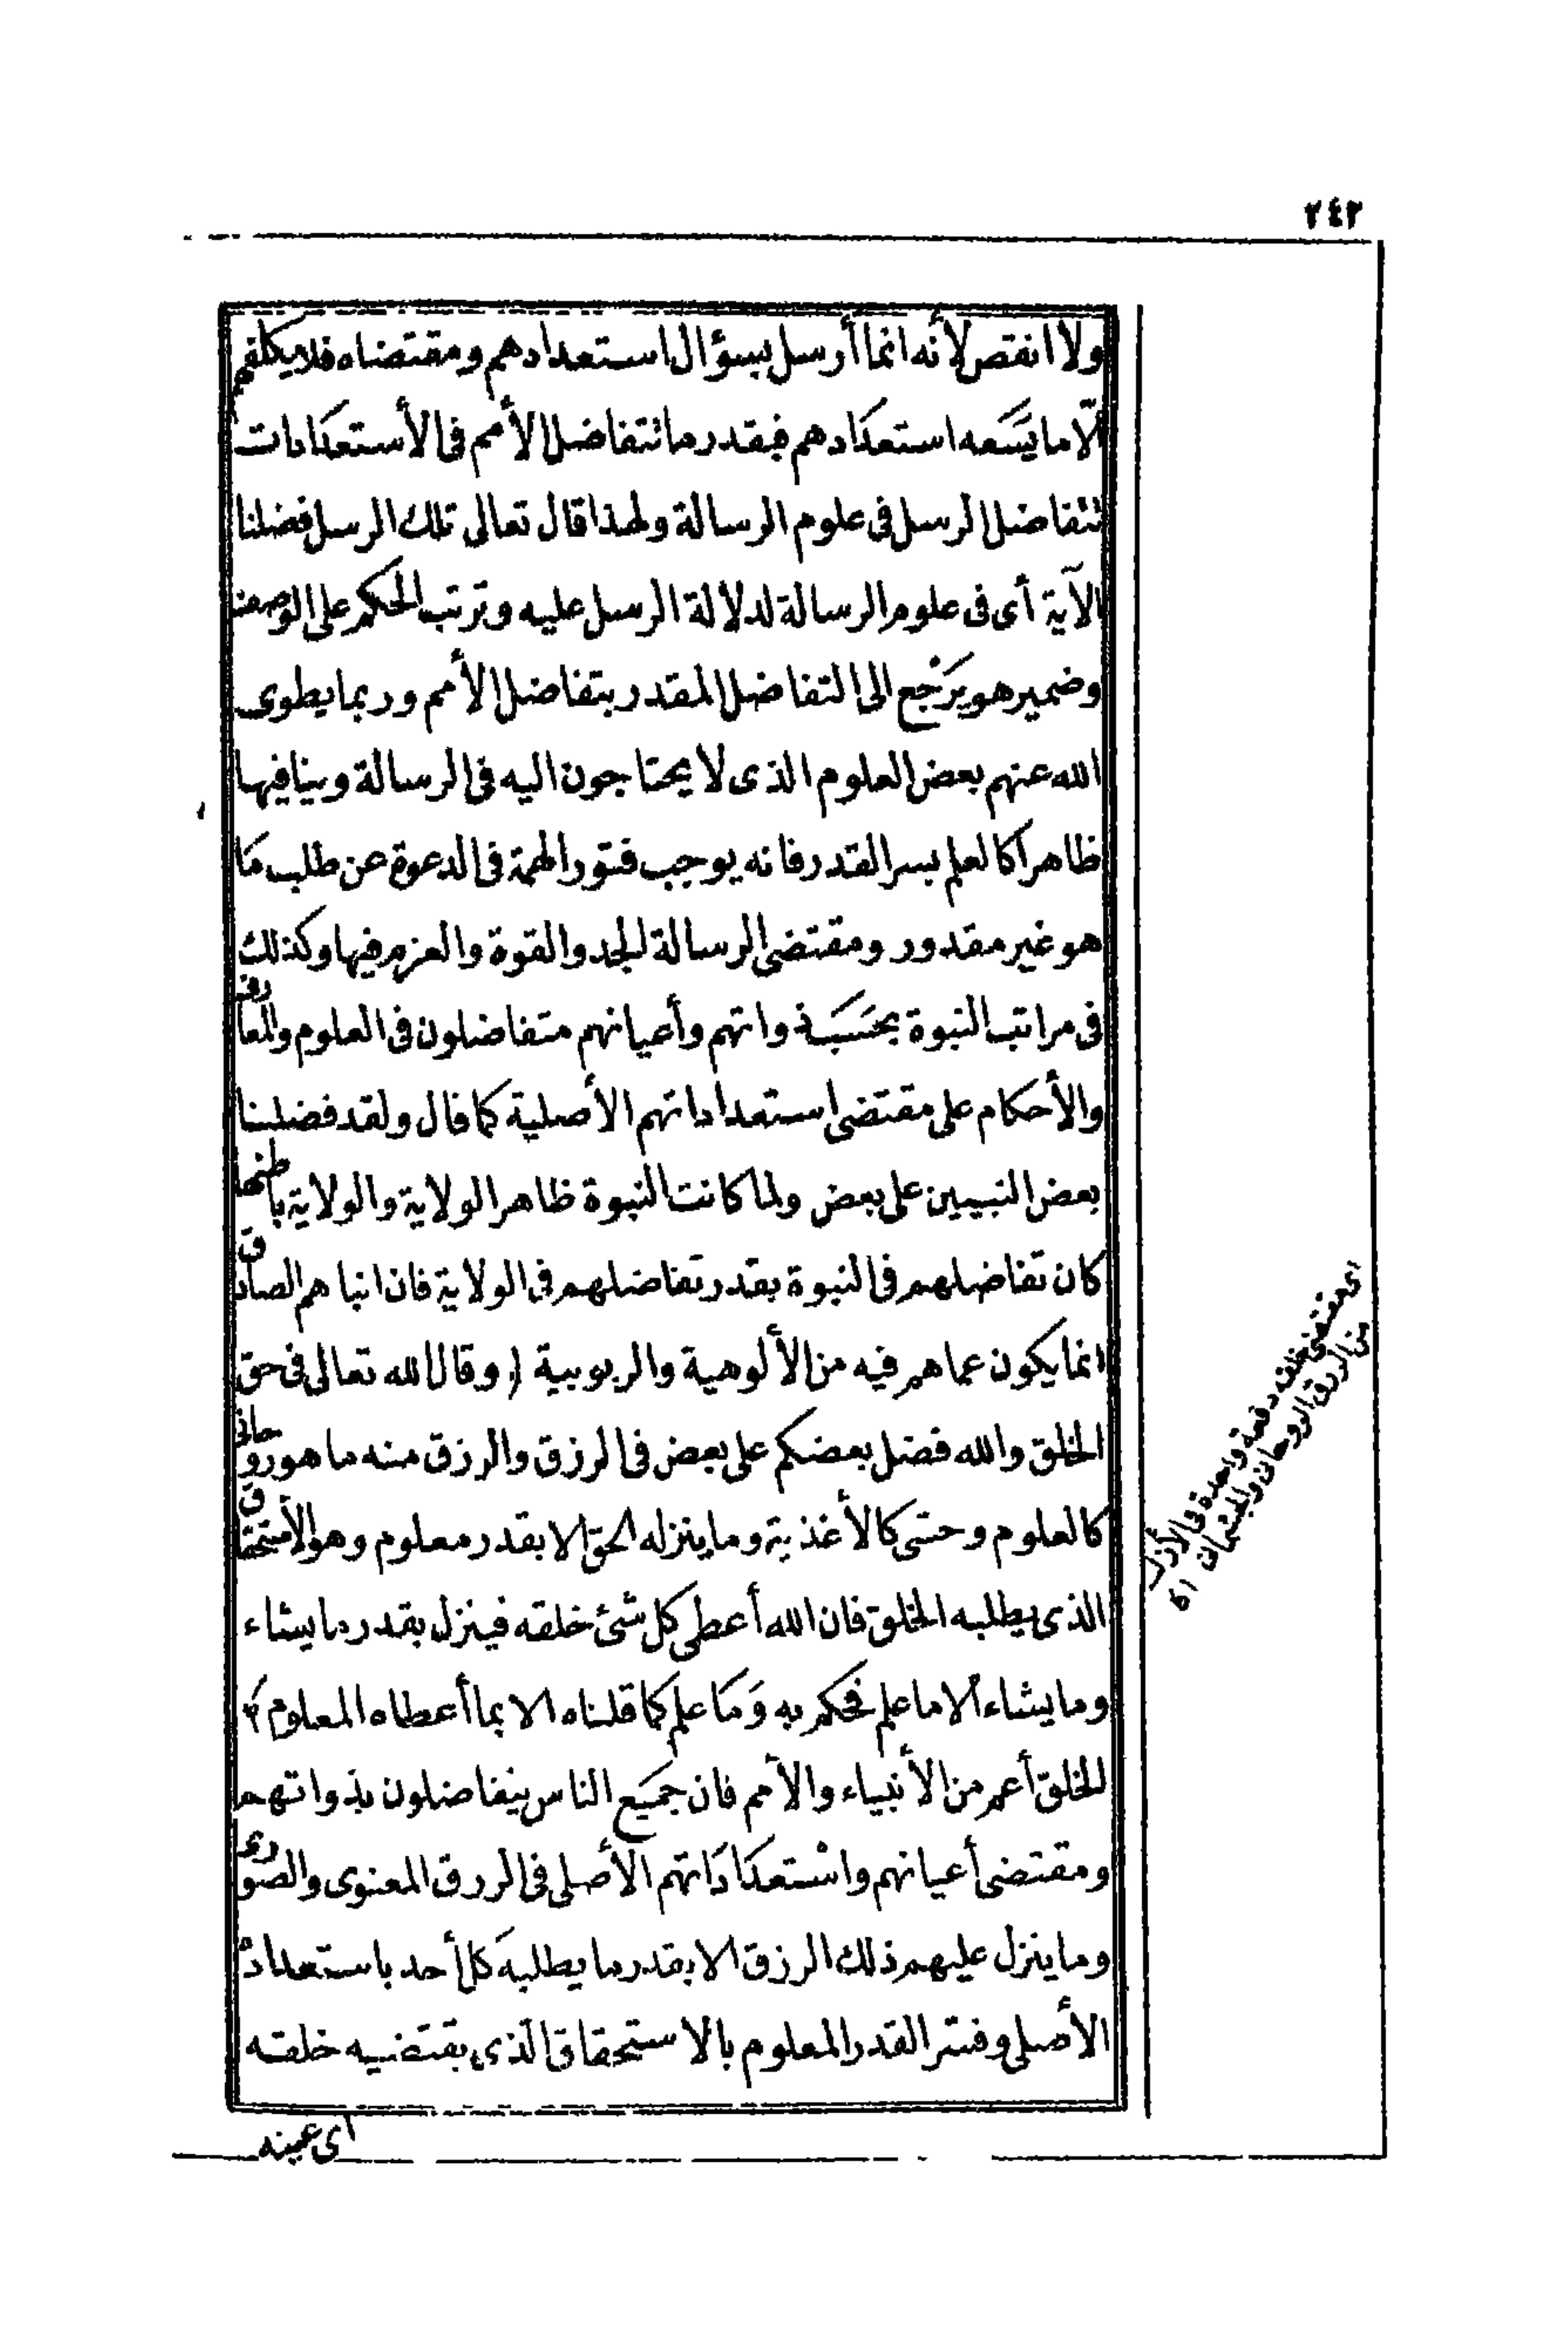 ٢٤٢
ولا انقص لأنه انما أرسل بسؤال استعدادهم ومقتضاه فلا يكلفهم
الّا ما يَسَعه استعدَادهم فبقدر ما تتفاضل الأمم فى الأستعدَادات
تتفاضل الرسل فى علوم الرسالة ولهذا قال تعالى تلك الرسل فضلنا
الآية أى فى علوم الرسالة لدلالة الرسل عليه وترتب الحكم على الوصف
وضمير هو يَرْجْع الى التفاضل المقدر بتفاضل الأمم وربما يطوى
الله عنهم بعض العلوم الذى لا يحتاجون اليه فى الرسالة وينافيها
ظاهرا كالعلم بسر القدر فانه يوجب فتور الهمة فى الدعوة عن طلب مَا
هو غير مقدور ومقتضى الرسالة الجد والقوة والعزم فيها وكذلك
فى مراتب النبوة بحسَبَ ذواتهم وأعيانهم متفاضلون فى العلوم والمعارف
والأحكام على مقتضى استعداداتهم الأصلية كما قال ولقد فضلنا
بعض النبيين على بعض ولما كانت النبوة ظاهر الولاية والولاية باطنها
كان تفاضلهم فى النبوة بقدر تفاضلهم فى الولاية فان انباهم الصادق
انما يكون عما هم فيه من الألوهية والربوبية (وقال الله تعالى فى حق
الخلق والله فضل بعضكم على بعض فى الرزق والرزق منه ما هو روحانى
كالعلوم وحتى كالأغذية وما ينزله الحق الا بقدر معلوم وهو الأستحقاق
الذى يطلبه الخلق فان الله أعطى كل شئ خلقه فينزل بقدر ما يشاء
وما يشاء الا ما علم فحكم به وَمَا علم كما قلناه الا بما أعطاه المعلوم
الخلق أعم من الأنبياء والأمم فان جمَيع الناس يتفاضلون بذواتهم
ومقتضى أعيانهم واسْتعدَادَاتهم الأصلى فى الرزق المعنوى والصورى
وما ينزل عليهم ذلك الرزق الا بقدر ما يطلبهَ كل أحد باستعداده
الأصلى وفسر القدر المعلوم بالاستحقاق الّذى يقتضيه خلقه
أى عينه
اى مقتضى خلقه دفعة واحدة فى الأزل
من الرزق الروحانى والجسمانى اه